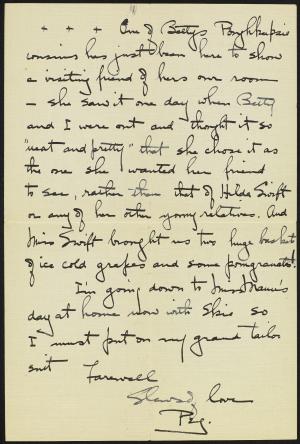 + + + One of Bettys Poughkeepsie
cousins has just been here to show
a visiting friend of hers our room
– she saw it one day when Betty
and I were out and thought it so
"neat and pretty" that she chose it as
the one she wanted her friend
to see, rather than that of Hilda Swift
or any of her other young relatives. And
Miss Swift brought us two huge basket
of ice cold grapes and some pomgranates.
I'm going down to Miss
day at home now with Elsie so
I must put on my grand tailor
suit Farewell
love
Peg.